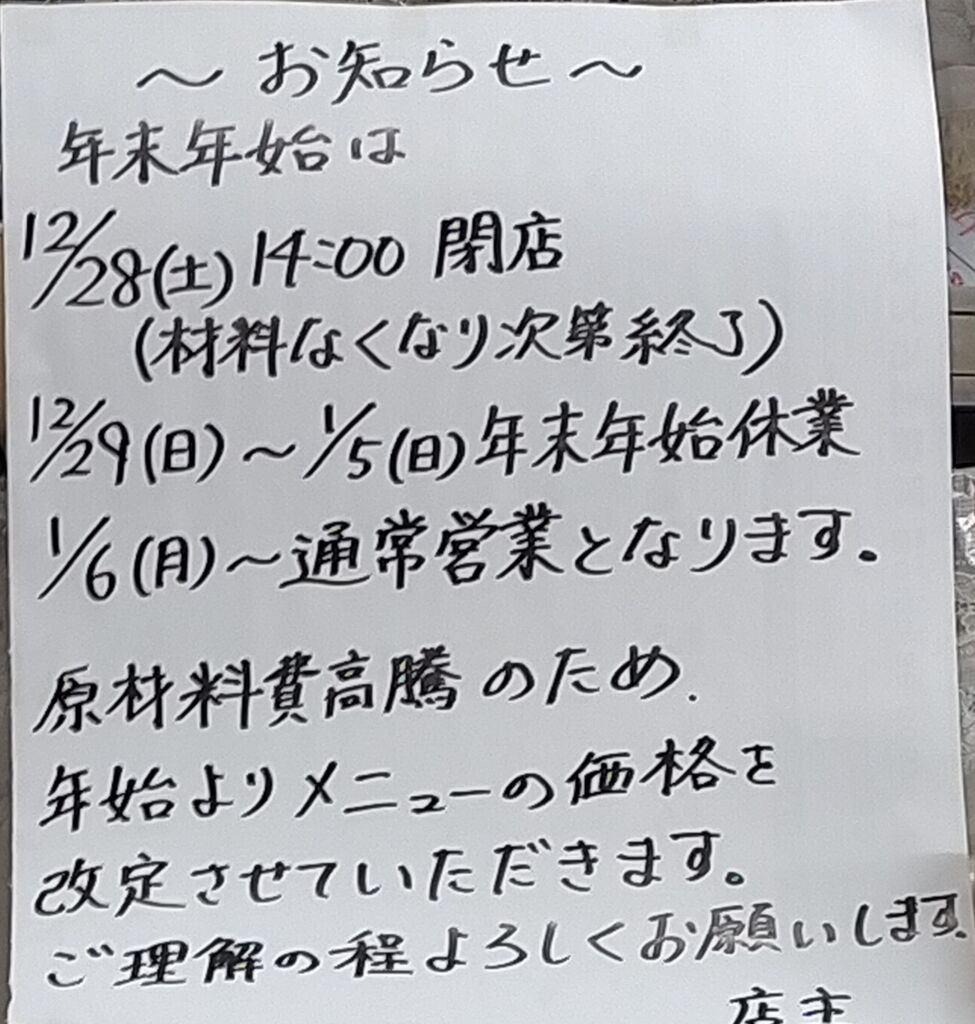 ～お知らせ～
年末年始は
12/28(土) 14:00 閉店
(材料なくなり次第終了)
12/29(日)～1/5(日)年末年始休業
1/6(月)～通常営業となります。
原材料費高騰のため、
年始よりメニューの価格を
改定させていただきます。
ご理解の程よろしくお願いします。
店主